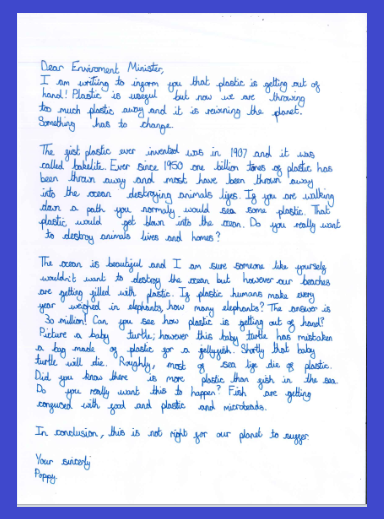 Dear Enviroment Minister,
I am writing to inform you that plastic is getting out of
hand! Plastic is useful but now we are throwing
too much plastic away and it is ruining the planet.
Something has to change.
The fist plastic ever invented was in 1907 and it was
called bakelite. Ever since 1950 one billion tones of plastic has
been thrown away and most have been thrown away
into the ocean destroying animals lifes. If you are walking
down a path you normaly would see some plastic. That
plastic would get blown into the ocean. Do you really want
to destroy animals lives and homes?
The ocean is beautiful and I am sure someone like yourself
wouldn't want to destroy the ocean but however our beaches
are getting filled with plastic. If plastic humans make every
year weighed in elephants, how many elephants? The answer is
30 million! Can you see how plastic is getting out of hand?
Picture a baby turtle; however this baby turtle has mistaken
a bag made of plastic for a jellyfish. Shortly that baby
turtle will die. Roughly, most of sea life die of plastic.
Did you know there is more plastic than fish in the sea.
Do you really want this to happen? Fish are getting
confused with food and plastic and microbeads.
In conclusion, this is not right for our planet to suffer.
Your sincerly
Poppy.